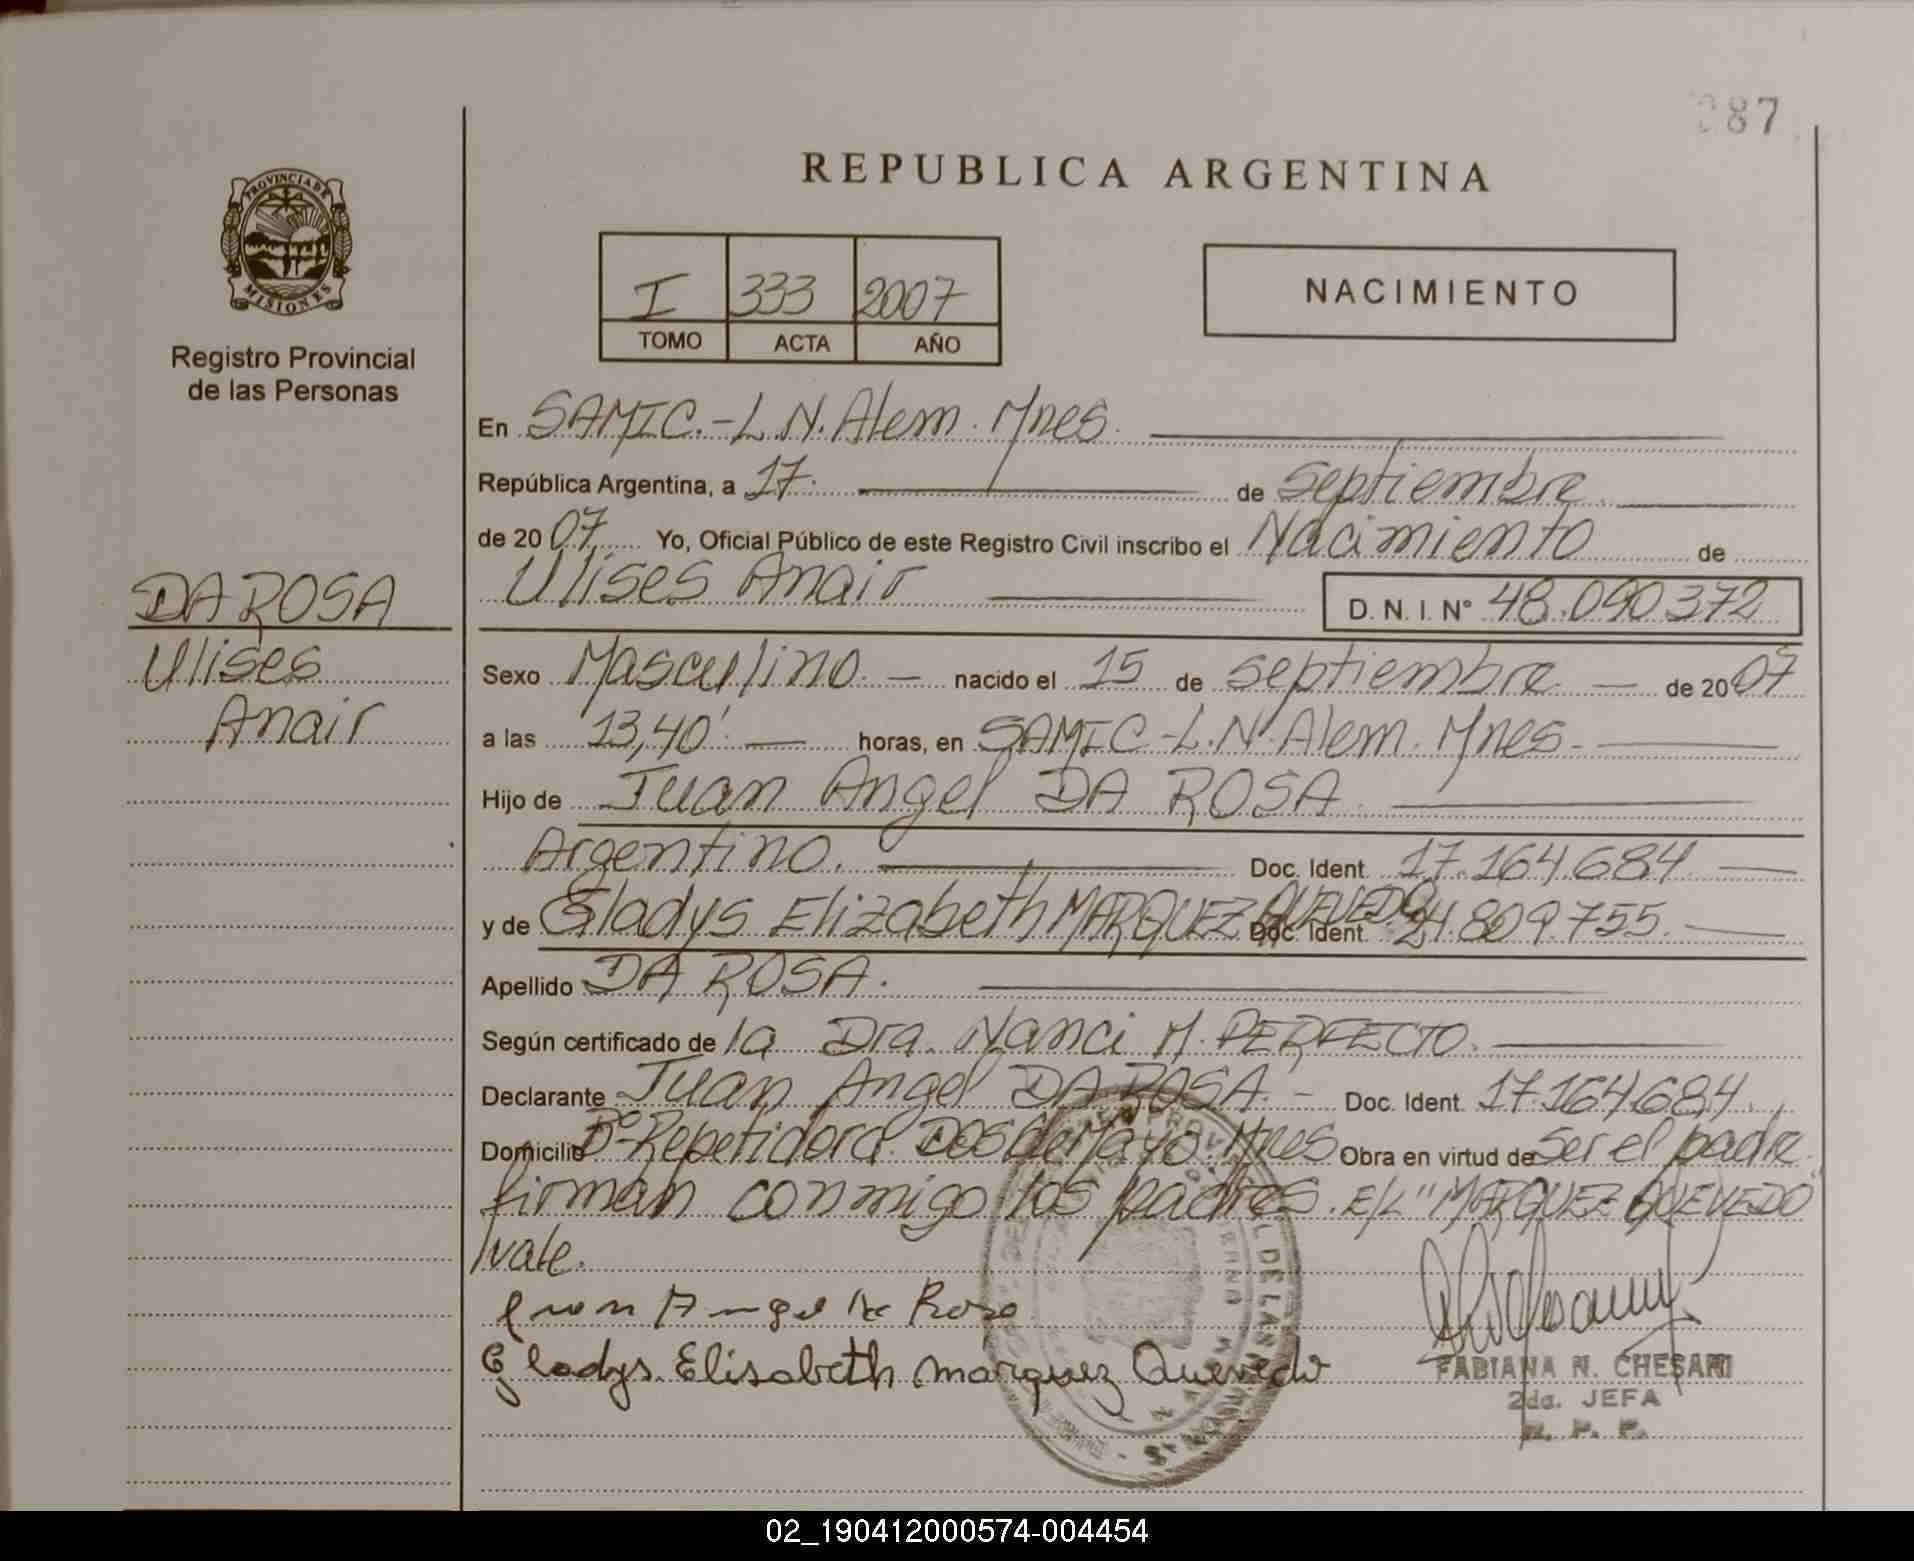 087
REPUBLICA ARGENTINA
PROVINCIA DE
MISIONES
Registro Provincial
de las Personas
I 333 2007
TOMO ACTA AÑO
NACIMIENTO
En SAMIC.-L.N.Alem.Mnes.
República Argentina, a 17. de septiembre.
de 20 07 Yo, Oficial Público de este Registro Civil inscribo el Nacimiento de
Ulises Anair D. N. I. N° 48.090.372
DA ROSA
Ulises
Anair
Sexo Masculino.- nacido el 15 de septiembre.- de 20 07
a las 13,40' horas, en SAMIC-L.N.Alem.Mnes.-
Hijo de Juan Angel DA ROSA.
Argentino. Doc. Ident. 17.164.684
y de Gladys Elizabeth MARQUEZ QUEVEDO Doc. Ident. 24.809.755.
Apellido DA ROSA.
Según certificado de la Dra. Nanci M. PERFECTO.
Declarante Juan Angel DA ROSA.- Doc. Ident. 17.164.684.
Domicilio B° Repetidora. Dos de Mayo. Mnes Obra en virtud de ser el padre.
firman conmigo los padres. E/L "MARQUEZ QUEVEDO"
vale.
Juan Angel Da Rosa
Gladys Elisabeth Marquez Quevedo
FABIANA N. CHESANI
2da. JEFA
R. P. P.
02_190412000574-004454